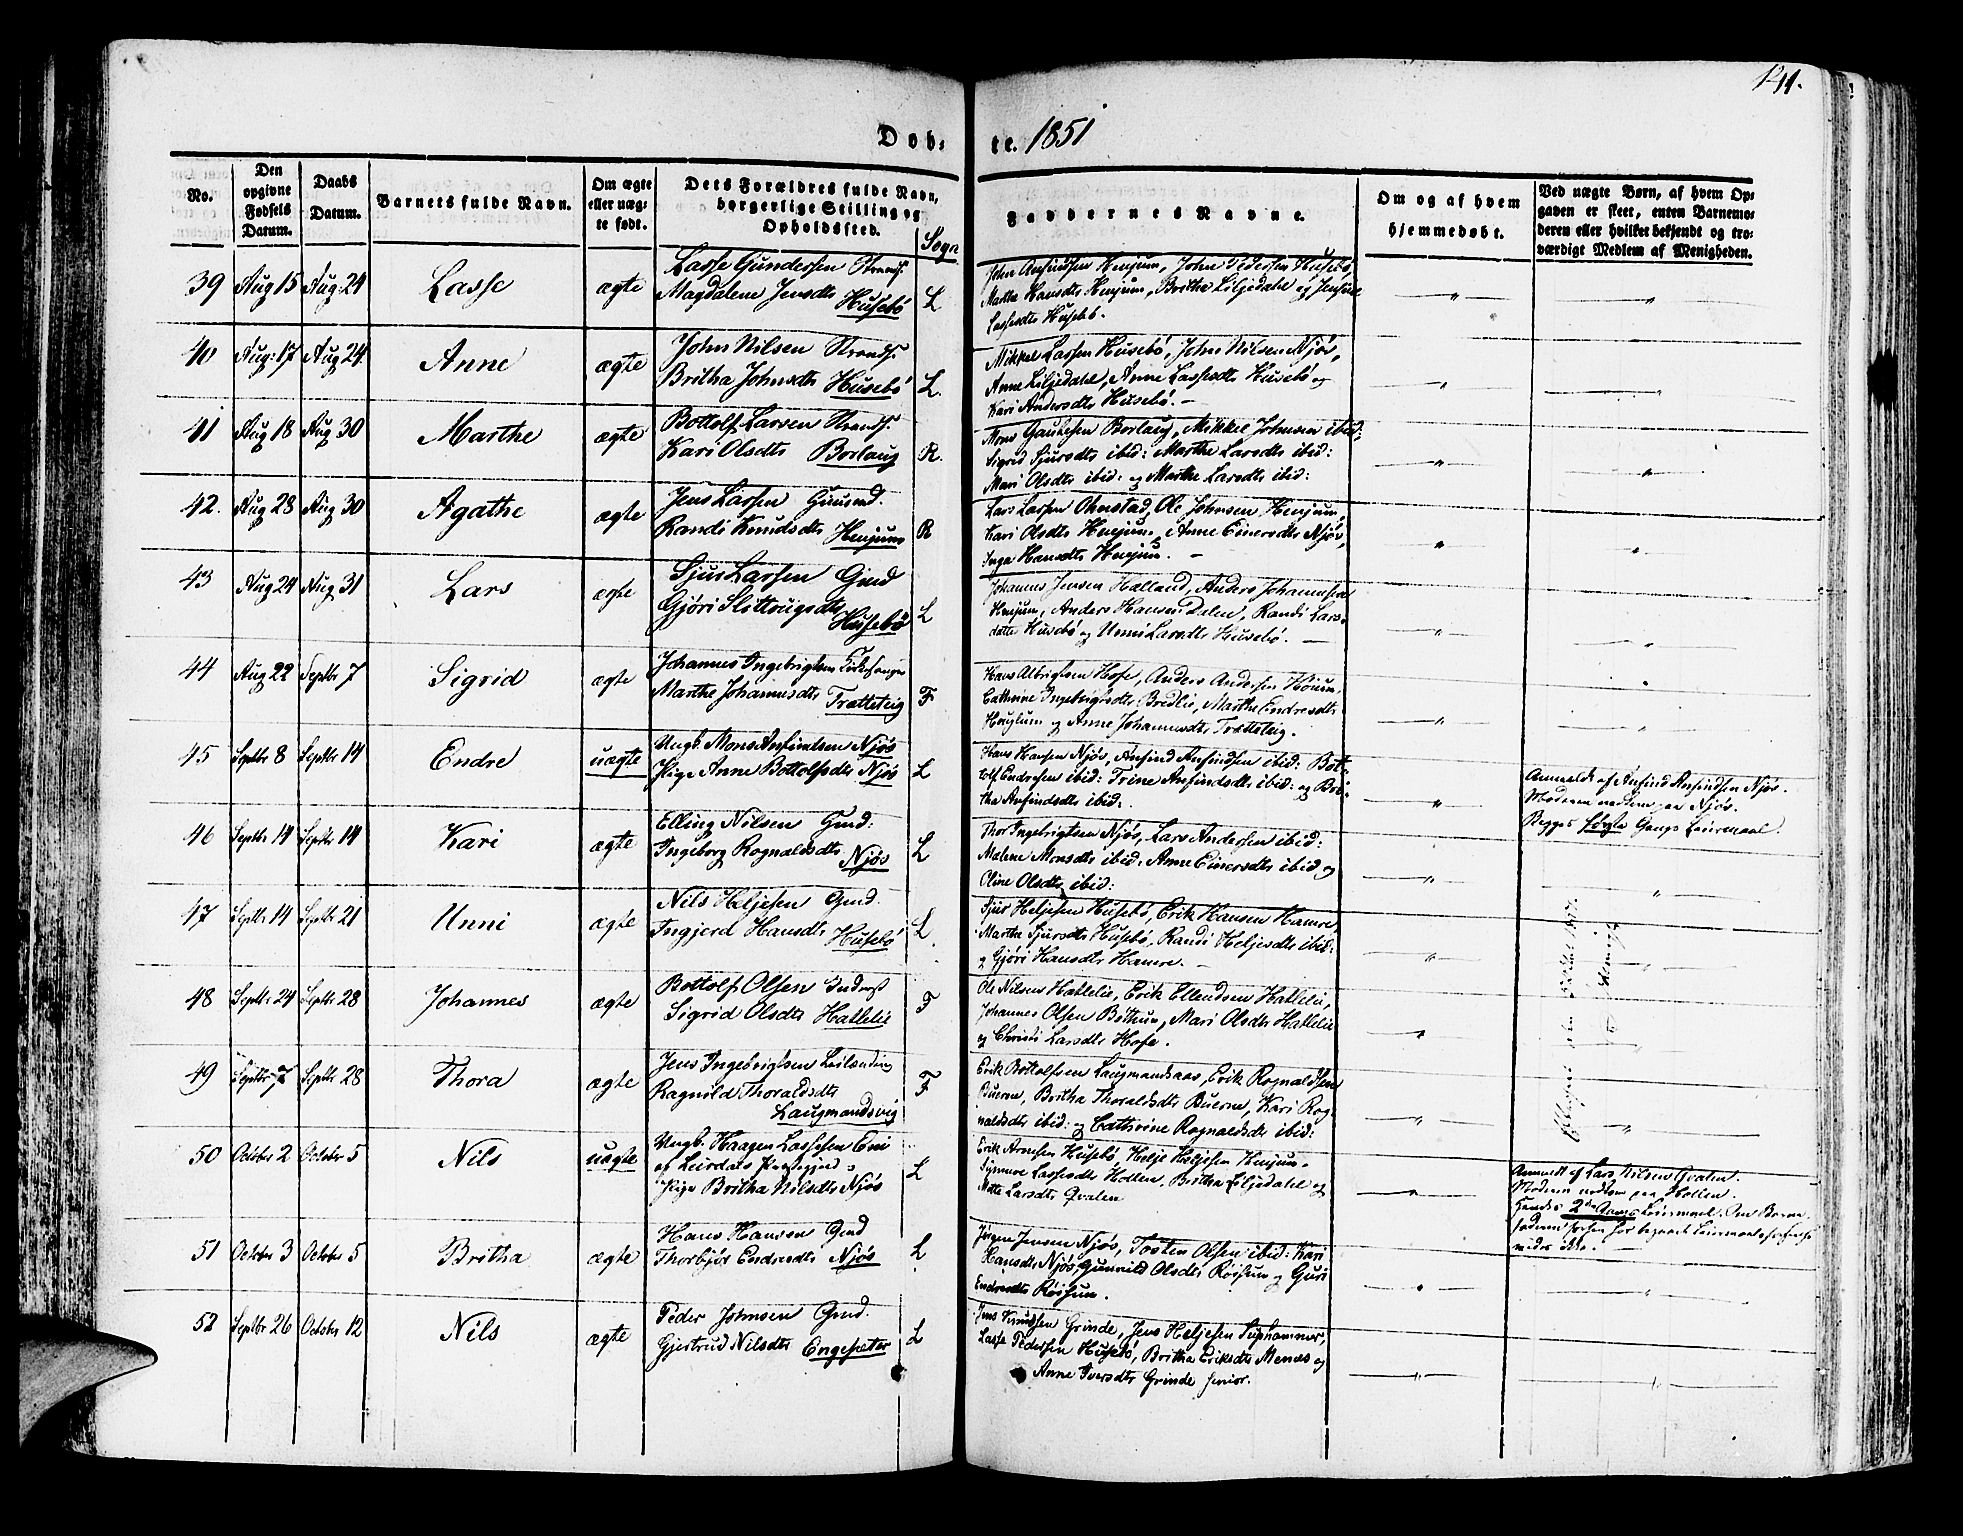 141.
Døb- te. 1851
No.
Den opgivne Fødsels Datum.
Daabs Datum.
Barnets fulde Navn.
Om ægte eller uægte født.
Dets Forældres fulde Navn, borgerlige Stilling og Opholdssted.
Sogn
Faddernes Navne.
Om og af hvem hjemmedøbt.
Ved uægte Børn, af hvem Opgaven er skeet, enten Barnemoderen eller hvilket bekjendt og troværdigt Medlem af Menigheden.
39 Aug 15 Aug: 24 Lasse ægte
Lasse Gundersen Strands.
Magdalene Jensdtr Husebö L
John Ansindsen Henjum, John Pedersen Husebö,
Martha Hansdtr Henjum, Britha Liljedahl og Jensine
Lassesdtr Husebö.
40 Aug: 17 Aug 24 Anne ægte
John Nilsen Strands.
Britha Johnsdtr Husebö L.
Mikkel Lassen Husebö, John Nilsen Njös,
Anne Liljedahl, Anne Lassesdtr Husebö og
Kari Andersdtr Husebö. —
41 Aug 18 Aug 30 Marthe ægte
Bottolf Larsen Strands.
Kari Olsdtr Borlaug R.
Mons Gautesen Borlaug, Mikkel Johnsen ibid:
Sigrid Sjursdtr ibid: Marthe Larsdtr ibid:
Mari Olsdtr ibid: og Marthe Larsdtr ibid:
42. Aug 28 Aug 30 Agathe ægte
Jens Larsen Gmd.
Randi Knudsdtr Henjum R
Lars Larsen Ohnstad, Ole Johnsen Henjum
Kari Olsdtr Henjum, Anne Einersdtr Njös,
Inga Hansdtr Henjum. —
43 Aug 24 Aug 31 Lars ægte
Sjur Larsen Gmd
Gjöri Slittvigsdtr
Husebö L
Johannes Jensen Hælland, Anders Johannesen
Henjum, Anders Hansen Dalen, Randi Lars-
datter Husebö og Unni Larsdtr Husebö. —
44 Aug 22 Septbr 7 Sigrid ægte
Johannes Ingebrigtsen Kirkesanger
Marthe Johannesdtr Trætteteig F
Hans Albrigtsen Hofe, Anders Andersen Höium
Cathrine Ingebrigtsdtr Bredlie, Marthe Endresdtr
og Anne Johannesdtr Trætteteig.
45 Septbr 8 Septbr 14 Endre uægte
Ungk. Mons Ansindsen Njös
Pige Anne Bottolfsdtr Njös L
Hans Hansen Njös, Ansind Ansindsen ibid: Bot-
tolf Endresen ibid: Trine Ansindsdtr ibid: og Bri-
tha Ansindsdtr ibid:
Anmeldt af Ansind Ansindsen Njös.
Moderen nedkom paa Njös.
Begges første Gangs Leiermaal.
46 Septbr 14 Septbr 14 Kari ægte
Elling Nilsen Gmd:
Ingeborg Rognaldsdtr Njös L
Thor Ingebrigtsen Njös, Lars Andersen ibid:
Malene Monsdtr ibid: Anne Einersdtr ibid og
Oline Olsdtr ibid:
47 Septbr 14 Septbr 21 Unni ægte
Nils Heljesen Gmd.
Ingjerd Hansdtr Husebö L
Sjur Heljesen Husebö, Erik Hansen Hamre
Martha Sjursdtr Husebö, Randi Heljesdtr ibid:
og Gjöri Hansdtr Hamre. —
48 Septbr 24 Septbr 28 Johannes ægte
Bottolf Olsen Inderst
Sigrid Olsdtr Hatlelie F
Ole Nilsen Hatlelie, Erik Ellendsen Hatlelie,
Johannes Olsen Böthun, Mari Olsdtr Hatlelie
og Christi Larsdtr Hofe.
49 Septbr 7 Septbr 28 Thora ægte
Jens Ingebrigtsen Leilænding
Ragnild Thoraldsdtr
Laugmandsvig F
Erik Bottolfsen Laugmandsaas, Erik Rognaldsen
Buerne, Britha Thoraldsdtr Buerne, Kari Rog-
naldsdtr ibid: og Cathrine Rognaldsdtr ibid:
50 October 2 October 5 Nils uægte
Ungk. Haagen Lassesen Eni
af Leirdals Præstegjeld:
Pige Britha Nilsdtr Njös L
Erik Arnesen Husebö, Helje Heljesen Henjum
Synneve Lassesdtr Hollen, Britha Liljedahl og
Mette Larsdtr Qvalen
Anmeldt af Lars Nilsen Qvalen.
Moderen nedkom paa Hollen.
Hendes 2den Gangs Leiermaal. Om Barne-
faderen forhen har begaaet Leiermaal
vides ikke. —
51 October 3 October 5 Britha ægte
Hans Hansen Gmd
Thorbjör Endresdtr Njös L
Jörgen Jensen Njös, Tosten Olsen ibid: Kari
Hansdtr Njös, Gunnild Olsdtr Röisum og Guri
Endresdtr Röisum.
52 Septbr 26 October 12 Nils ægte
Peder Johnsen Gmd.
Gjertrud Nilsdtr Engesæter L
Jens Knudsen Grinde, Jens Heljesen Suphammer,
Lasse Pedersen Husebö, Britha Eriksdtr Menæs og
Anne Iversdtr Grinde senior.